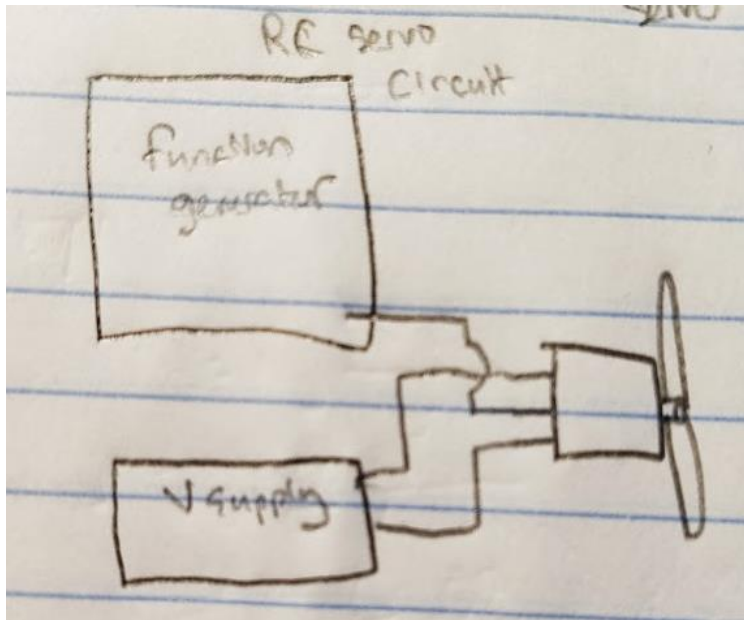 RC servo
circuit
function
generator
V supply